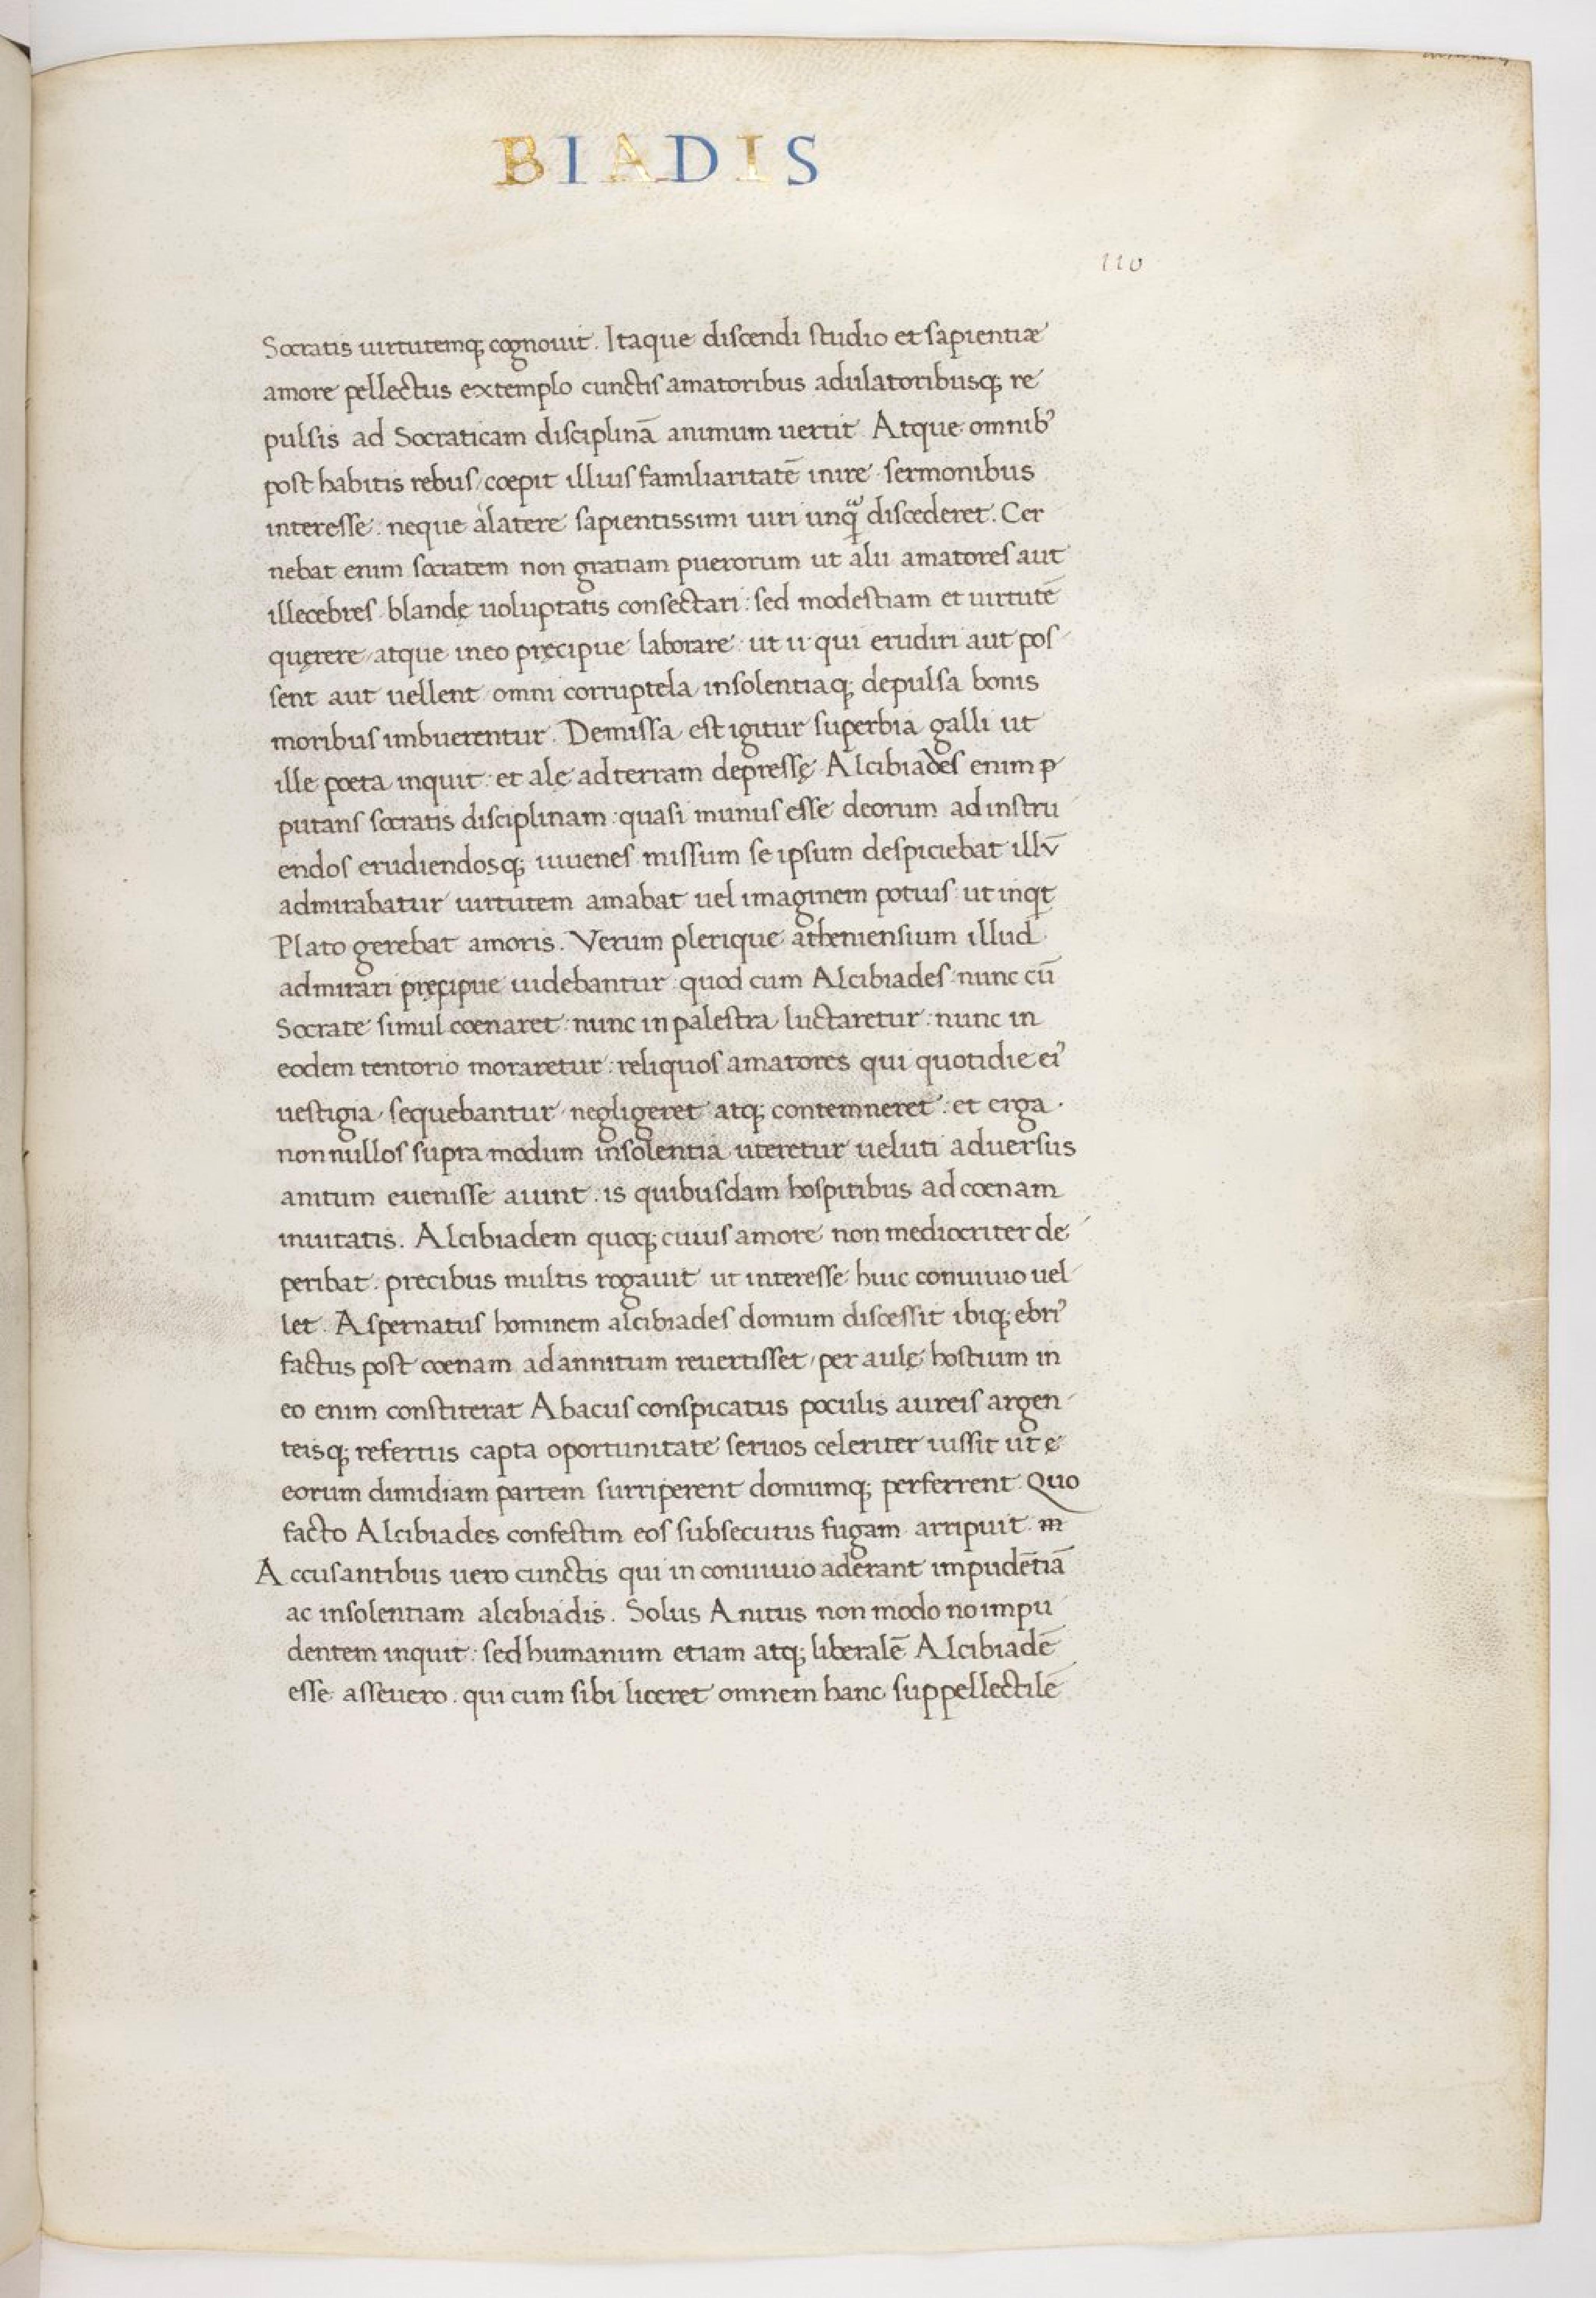 BIADIS
110
Socratis uirtutemq; cognouit. Itaque discendi studio et sapientiæ
amore pellectus extemplo cunctis amatoribus adulatoribusq; re
pulsis ad Socraticam disciplinā animum uertit. Atque omnibꝰ
post habitis rebus/ coepit illius familiaritatē inire sermonibus
interesse: neque àlatere sapientissimi uiri unqᷓ discederet. Cer
nebat enim socratem non gratiam puerorum ut alii amatores aut
illecebres blandę uoluptatis consectari: sed modestiam et uirtutē
quęrere/ atque ineo pręcipue laborare ut ii qui erudiri aut pos
sent aut uellent omni corruptela insolentiaq; depulsa bonis
moribus imbuerentur. Demissa est igitur superbia galli ut
ille poeta inquit: et alę adterram depressę Alcibiades enim p
putans socratis disciplinam: quasi munus esse deorum ad instru
endos erudiendosq; iuuenes missum se ipsum despiciebat illv̄
admirabatur uirtutem amabat uel imaginem potius ut inqt
Plato gerebat amoris. Verum plerique atheniensium illud
admirari pręcipue uidebantur quod cum Alcibiades nunc cū
Socrate simul coenaret: nunc in palestra luctaretur: nunc in
eodem tentorio moraretur: reliquos amatores qui quotidie eiꝰ
uestigia sequebantur negligeret atq; contemneret: et erga
nonnullos supra modum insolentia uteretur ueluti aduersus
anitum euenisse aiunt. is quibusdam hospitibus ad coenam
inuitatis. Alcibiadem quoq; cuius amore non mediocriter de
peribat: precibus multis rogauit ut interesse huic conuiuio uel
let. Aspernatus hominem alcibiades domum discessit ibiq; ebriꝰ
factus post coenam adannitum reuertisset/ per aulę hostium in
eo enim constiterat Abacus conspicatus poculis aureis argen
teisq; refertus capta oportunitate seruos celeriter iussit ut e
eorum dimidiam partem surriperent domumq; perferrent. Quo
facto Alcibiades confestim eos subsecutus fugam arripuit. m
Accusantibus uero cunctis qui in conuiuio aderant impudētiā
ac insolentiam alcibiadis. Solus Anitus non modo no impu
dentem inquit: sed humanum etiam atq; liberalē Alcibiadē
esse asseuero. qui cum sibi liceret omnem hanc suppellectilē